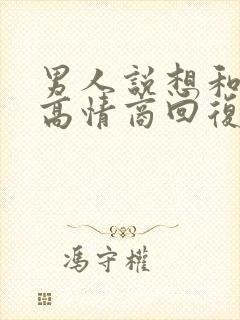 男人說想和
高情商回復
馮守權